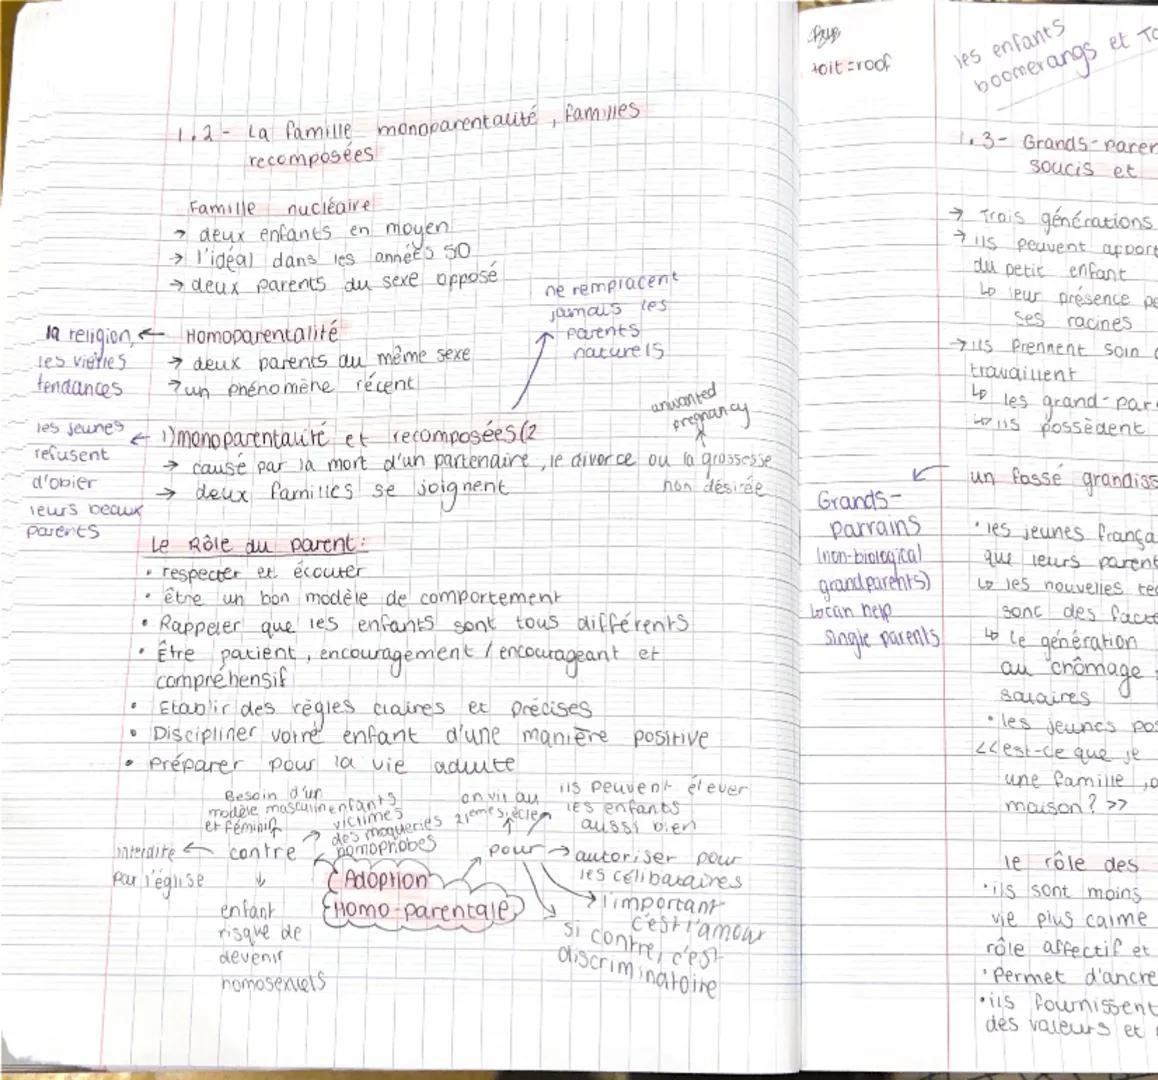 1.2 - La famille monoparentauté, familles
recomposées
Famille nucléaire
→ deux enfants en moyen
→ l'idéal dans les années 50
→ deux parents du sexe opposé
ne remplacent
jamais les
parents
naturels
la religion, ← Homoparentalité
les vieilles
tendances
→ deux parents du même sexe
→ un phénomène récent
unwanted
pregnancy
les jeunes
refusent
d'obier
leurs beaux
parents
← 1) monoparentauté et recomposées (2
→ causé par la mort d'un partenaire, le divorce ou la grossesse
non désirée
→ deux familles se joignent
Le Rôle du parent:
• respecter et écouter
• être un bon modèle de comportement
• Rappeler que les enfants sont tous différents
• Être patient, encouragement / encourageant et
compréhensif
• Etablir des règles claires et précises
• Discipliner votre enfant d'une manière positive
• Préparer pour la vie adulte
Besoin d'un
modèle masculin
et féminin
enfants
victimes
des moqueries
homophobes
on vit au
21eme siècle
ils peuvent élever
les enfants
aussi bien
interdite ← contre
par l'église
pour → autoriser pour
les célibataires
Adoption
Homo-parentale
→ l'important
c'est l'amour
enfant
risque de
devenir
homosexuels
si contre, c'est
discriminatoire
toit = roof
les enfants
boomerangs et
1.3 - Grands-paren
soucis et
→ Trois générations
→ ils peuvent apport
du petit enfant
↳ leur présence pe
ses racines
→ ils prennent soin
travaillent
↳ les grand-par
↳ ils possèdent
un fossé grandiss
Grands-
parrains
(non-biological
grandparents)
↳ can help
single parents
• les jeunes frança
que leurs parent
↳ les nouvelles tec
sont des facte
↳ le génération
au chômage
salaires
• les jeunes pos
<<est-ce que je
une famille, o
maison? >>
le rôle des
• ils sont moins
vie plus calme
rôle affectif et
• Permet d'ancre
• ils fournissent
des valeurs et